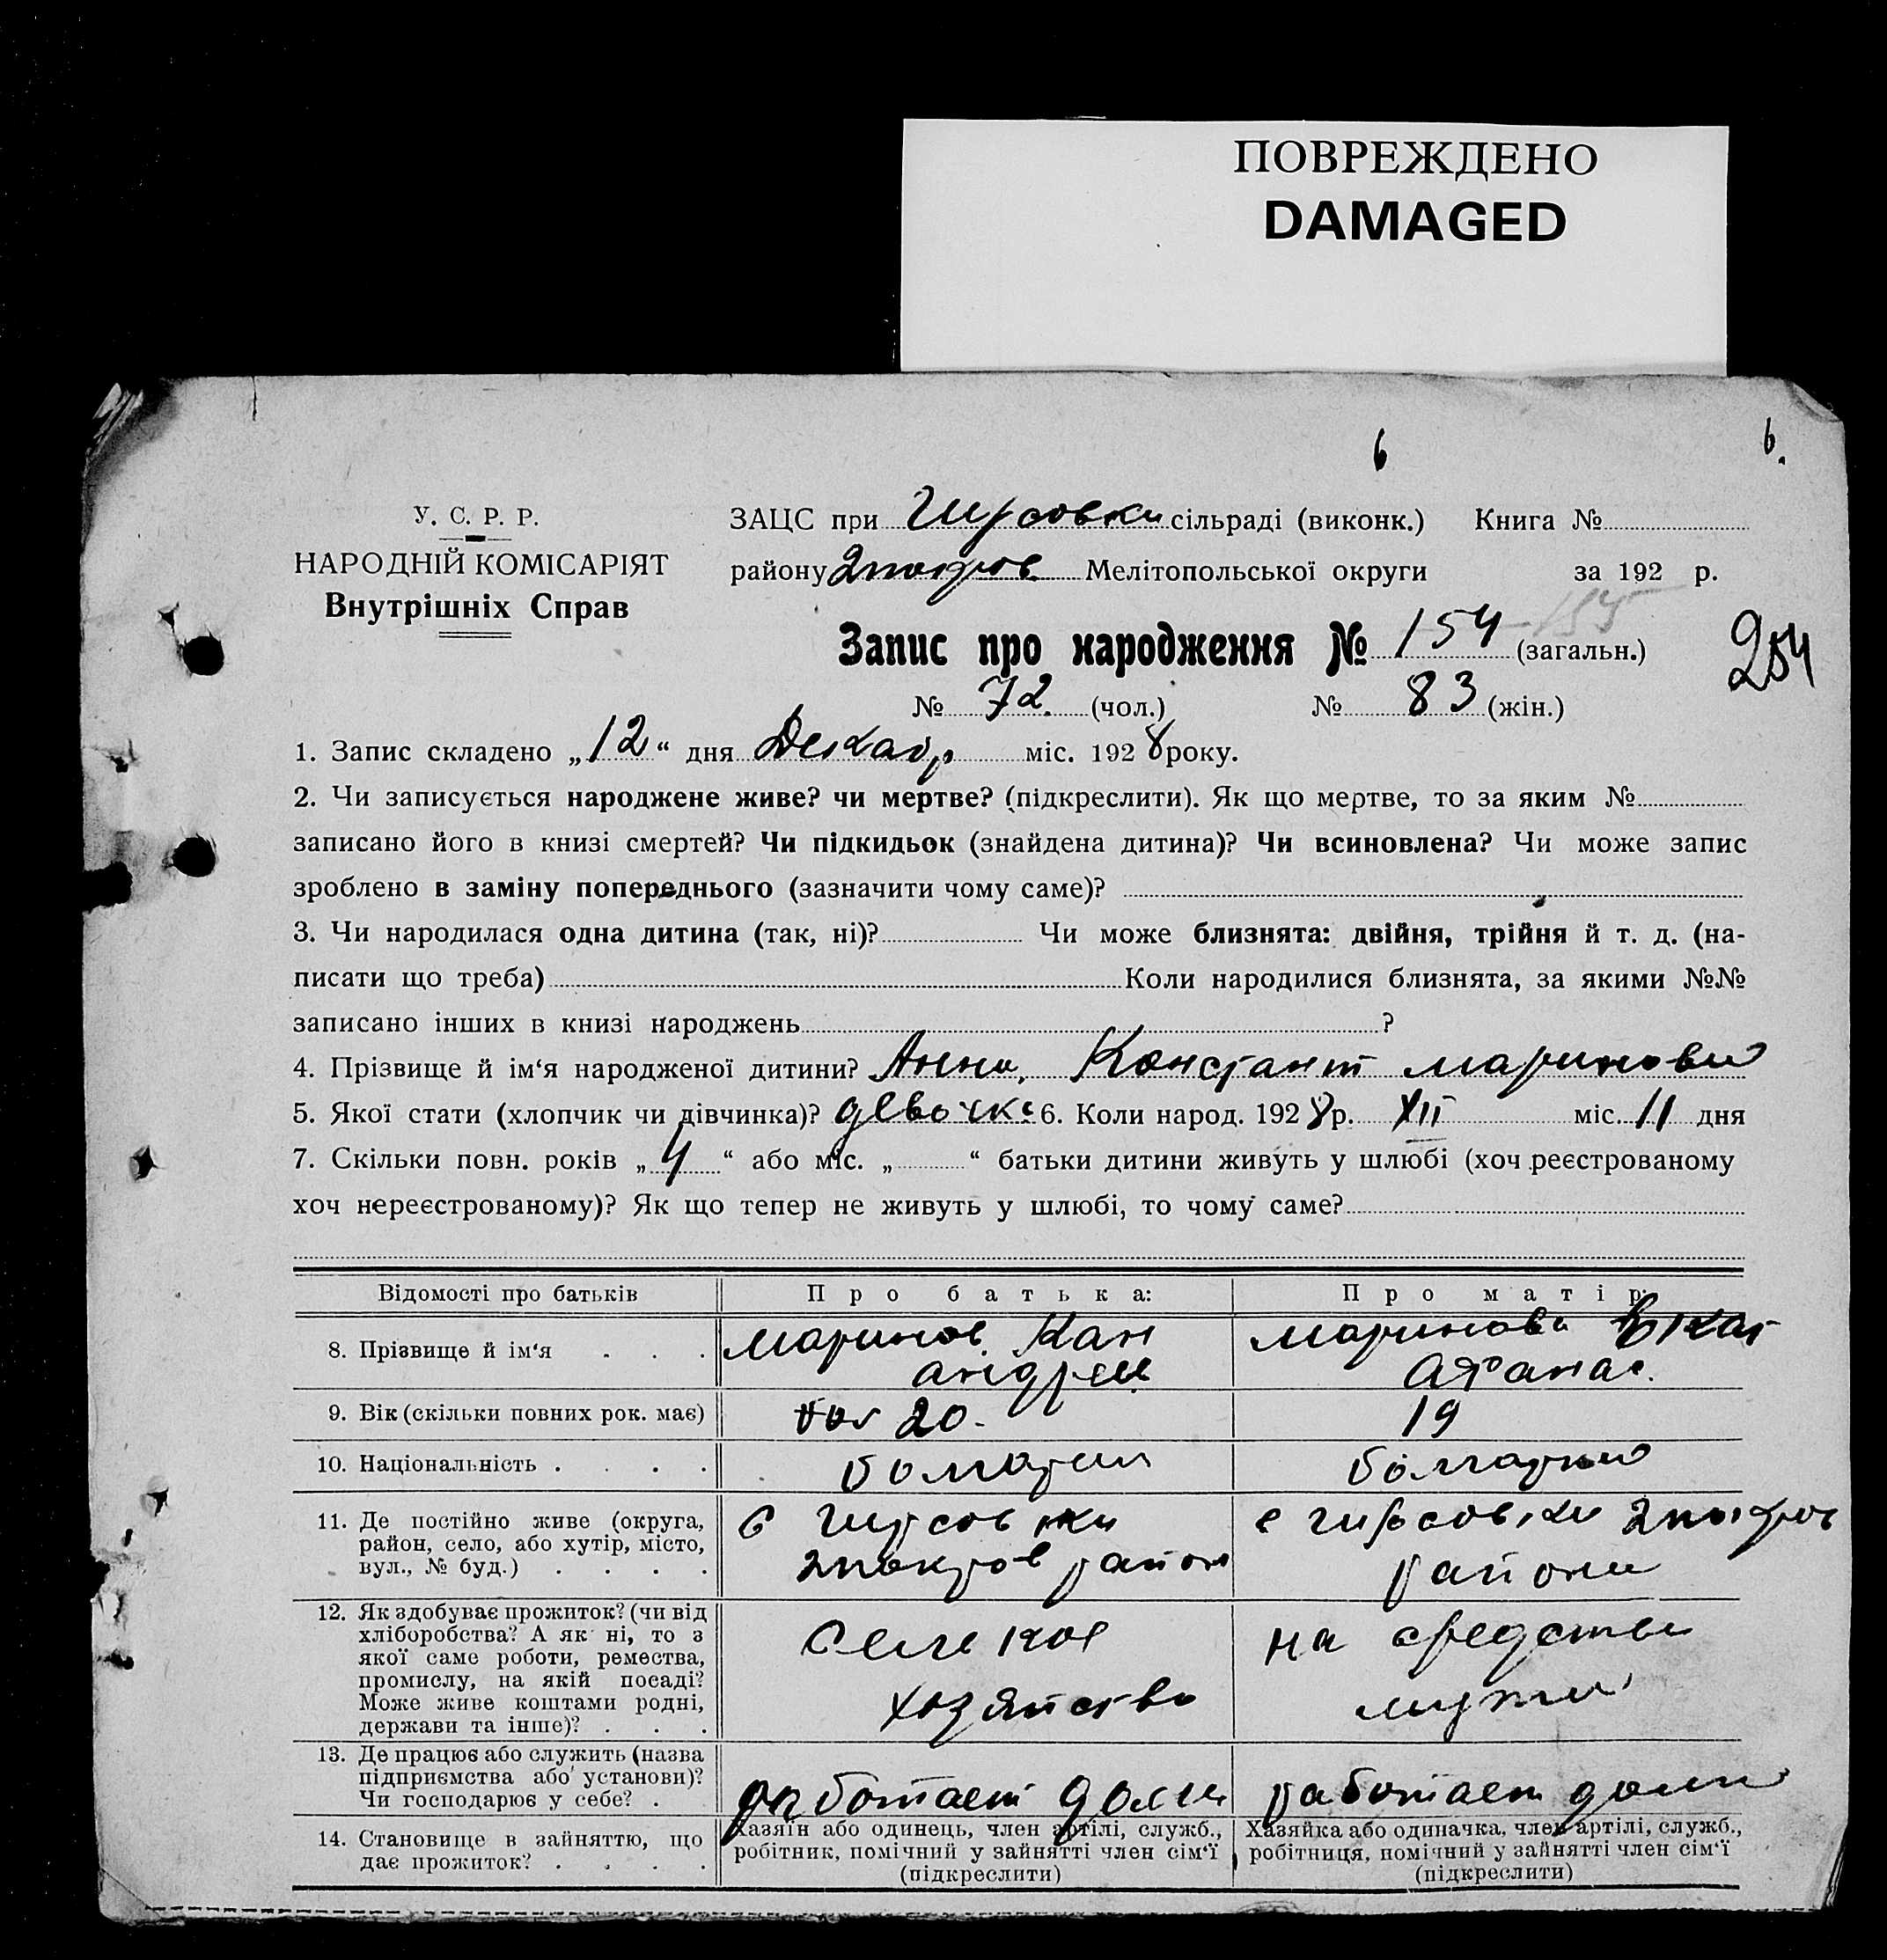 ПОВРЕЖДЕНО
DAMAGED
6
6.
У. С. Р. Р.
НАРОДНІЙ КОМІСАРІЯТ
Внутрішніх Справ
ЗАЦС при Гирсовки сільраді (виконк.) Книга №
району 2 покров Мелітопольської округи за 192 р.
155
Запис про народження № 154 (загальн.)
254
№ 72. (чол.) № 83 (жін.)
1. Запис складено „12“ дня Декабр міс. 1928 року.
2. Чи записується народжене живе? чи мертве? (підкреслити). Як що мертве, то за яким №
записано його в книзі смертей? Чи підкидьок (знайдена дитина)? Чи всиновлена? Чи може запис
зроблено в заміну попереднього (зазначити чому саме)?
3. Чи народилася одна дитина (так, ні)? Чи може близнята: двійня, трійня й т. д. (на-
писати що треба) Коли народилися близнята, за якими №№
записано інших в книзі народжень ?
4. Прізвище й ім‘я народженої дитини? Анна, Констант Маринова
5. Якої стати (хлопчик чи дівчинка)? девочка 6. Коли народ. 1928 р. XII міс. 11 дня
7. Скільки повн. років „4“ або міс. „ “ батьки дитини живуть у шлюбі (хоч реєстрованому
хоч нереєстрованому)? Як що тепер не живуть у шлюбі, то чому саме?
Відомості про батьків Про батька: Про матір:
8. Прізвище й ім‘я . . . Маринов Кон Маринова Екат
Андрее Афанас.
9. Вік (скільки повних рок. має) 20. 19
10. Національність . . . . болгарин болгарка
11. Де постійно живе (округа, с Гирсовки с Гирсовки 2 покров
район, село, або хутір, місто, 2 покров район района
вул., № буд.) . . . .
12. Як здобуває прожиток? (чи від
хліборобства? А як ні, то з Селское на средства
якої саме роботи, ремества,
промислу, на якій посаді?
Може живе коштами родні, хозяйство мужа
держави та інше)? . . .
13. Де працює або служить (назва
підприємства або установи)? работает дома работает дома
Чи господарює у себе? .
14. Становище в зайняттю, що Хазяїн або одинець, член артілі, служб., Хазяйка або одиначка, член артілі, служб.,
дає прожиток? . . . . робітник, помічний у зайнятті член сім‘ї робітниця, помічний у зайнятті член сім‘ї
(підкреслити) (підкреслити)